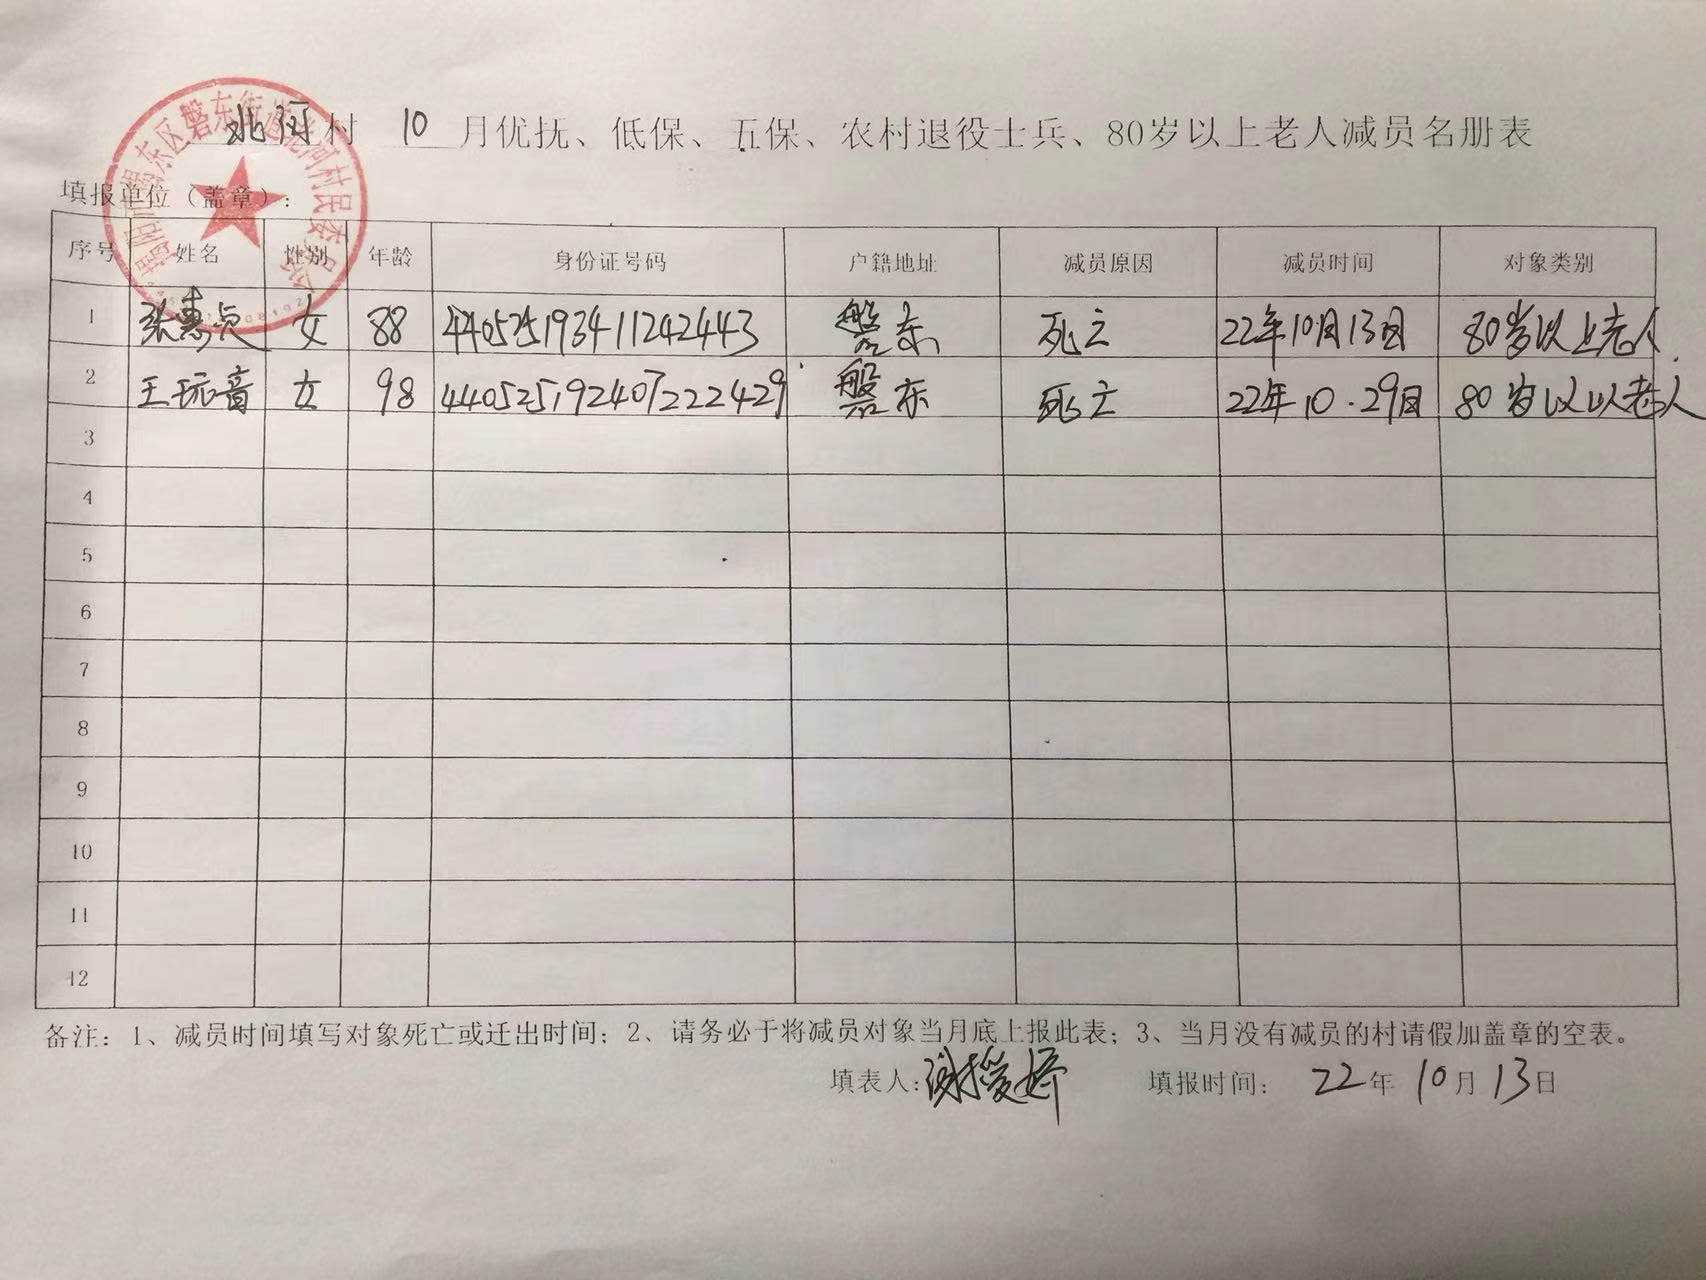 北河村 10 月优抚、低保、五保、农村退役士兵、80岁以上老人减员名册表
填报单位（盖章）：
序号 姓名 性别 年龄 身份证号码 户籍地址 减员原因 减员时间 对象类别
1 张惠贞 女 88 440525193411242443 磐东 死亡 22年10月13日 80岁以上老人
2 王玩音 女 98 440525192407222429 磐东 死亡 22年10.29日 80岁以以老人
3
4
5
6
7
8
9
10
11
12
备注：1、减员时间填写对象死亡或迁出时间；2、请务必于将减员对象当月底上报此表；3、当月没有减员的村请假加盖章的空表。
填表人：谢 填报时间： 22年 10月 13日
揭东区磐东街道北河村民委员会